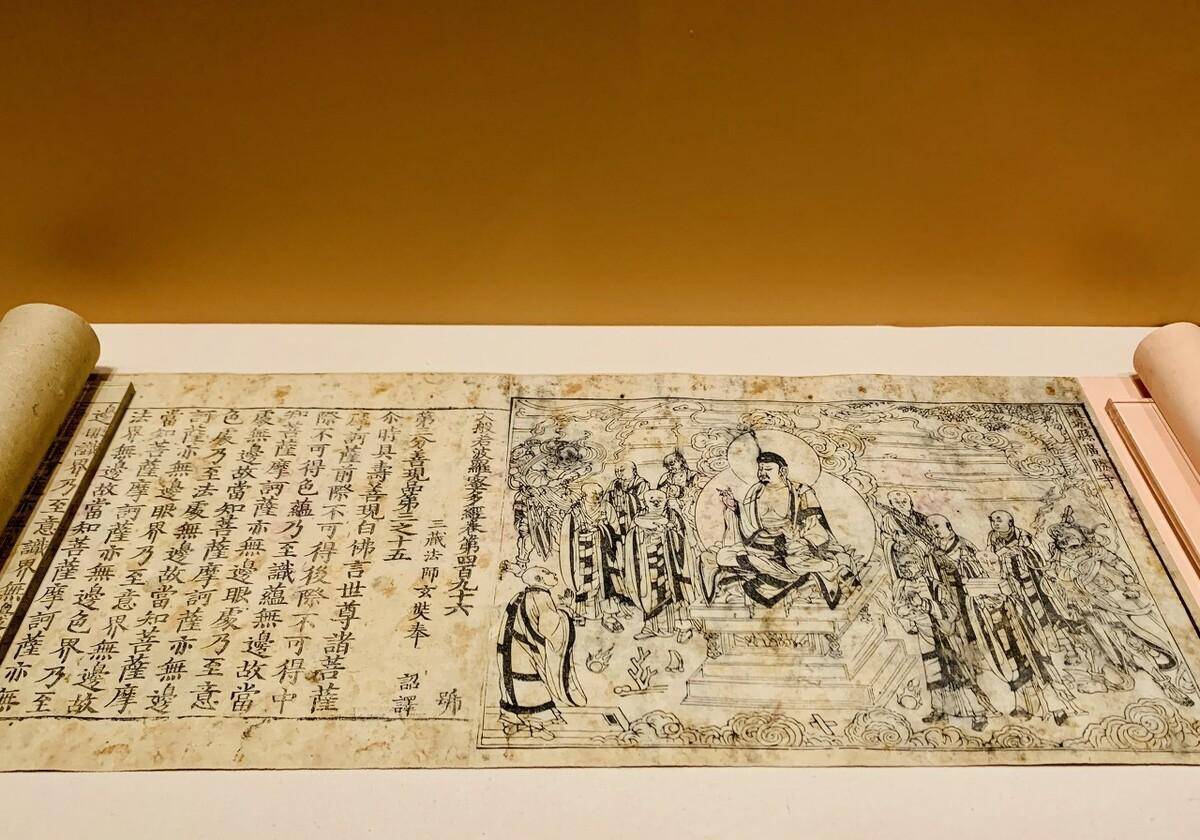 大般若波羅蜜多經卷第四百九十六 號
三藏法師玄奘奉 詔譯
第三分善現品第三之十五
尒時具壽善現白佛言世尊諸菩薩
摩訶薩前際不可得後際不可得中
際不可得色蘊乃至識蘊無邊故當
知菩薩摩訶薩亦無邊眼處乃至意
處無邊故當知菩薩摩訶薩亦無邊
色處乃至法處無邊故當知菩薩摩
訶薩亦無邊眼界乃至意界無邊故
當知菩薩摩訶薩亦無邊色界乃至
法界無邊故當知菩薩摩訶薩亦無
邊眼識界乃至意識界無邊